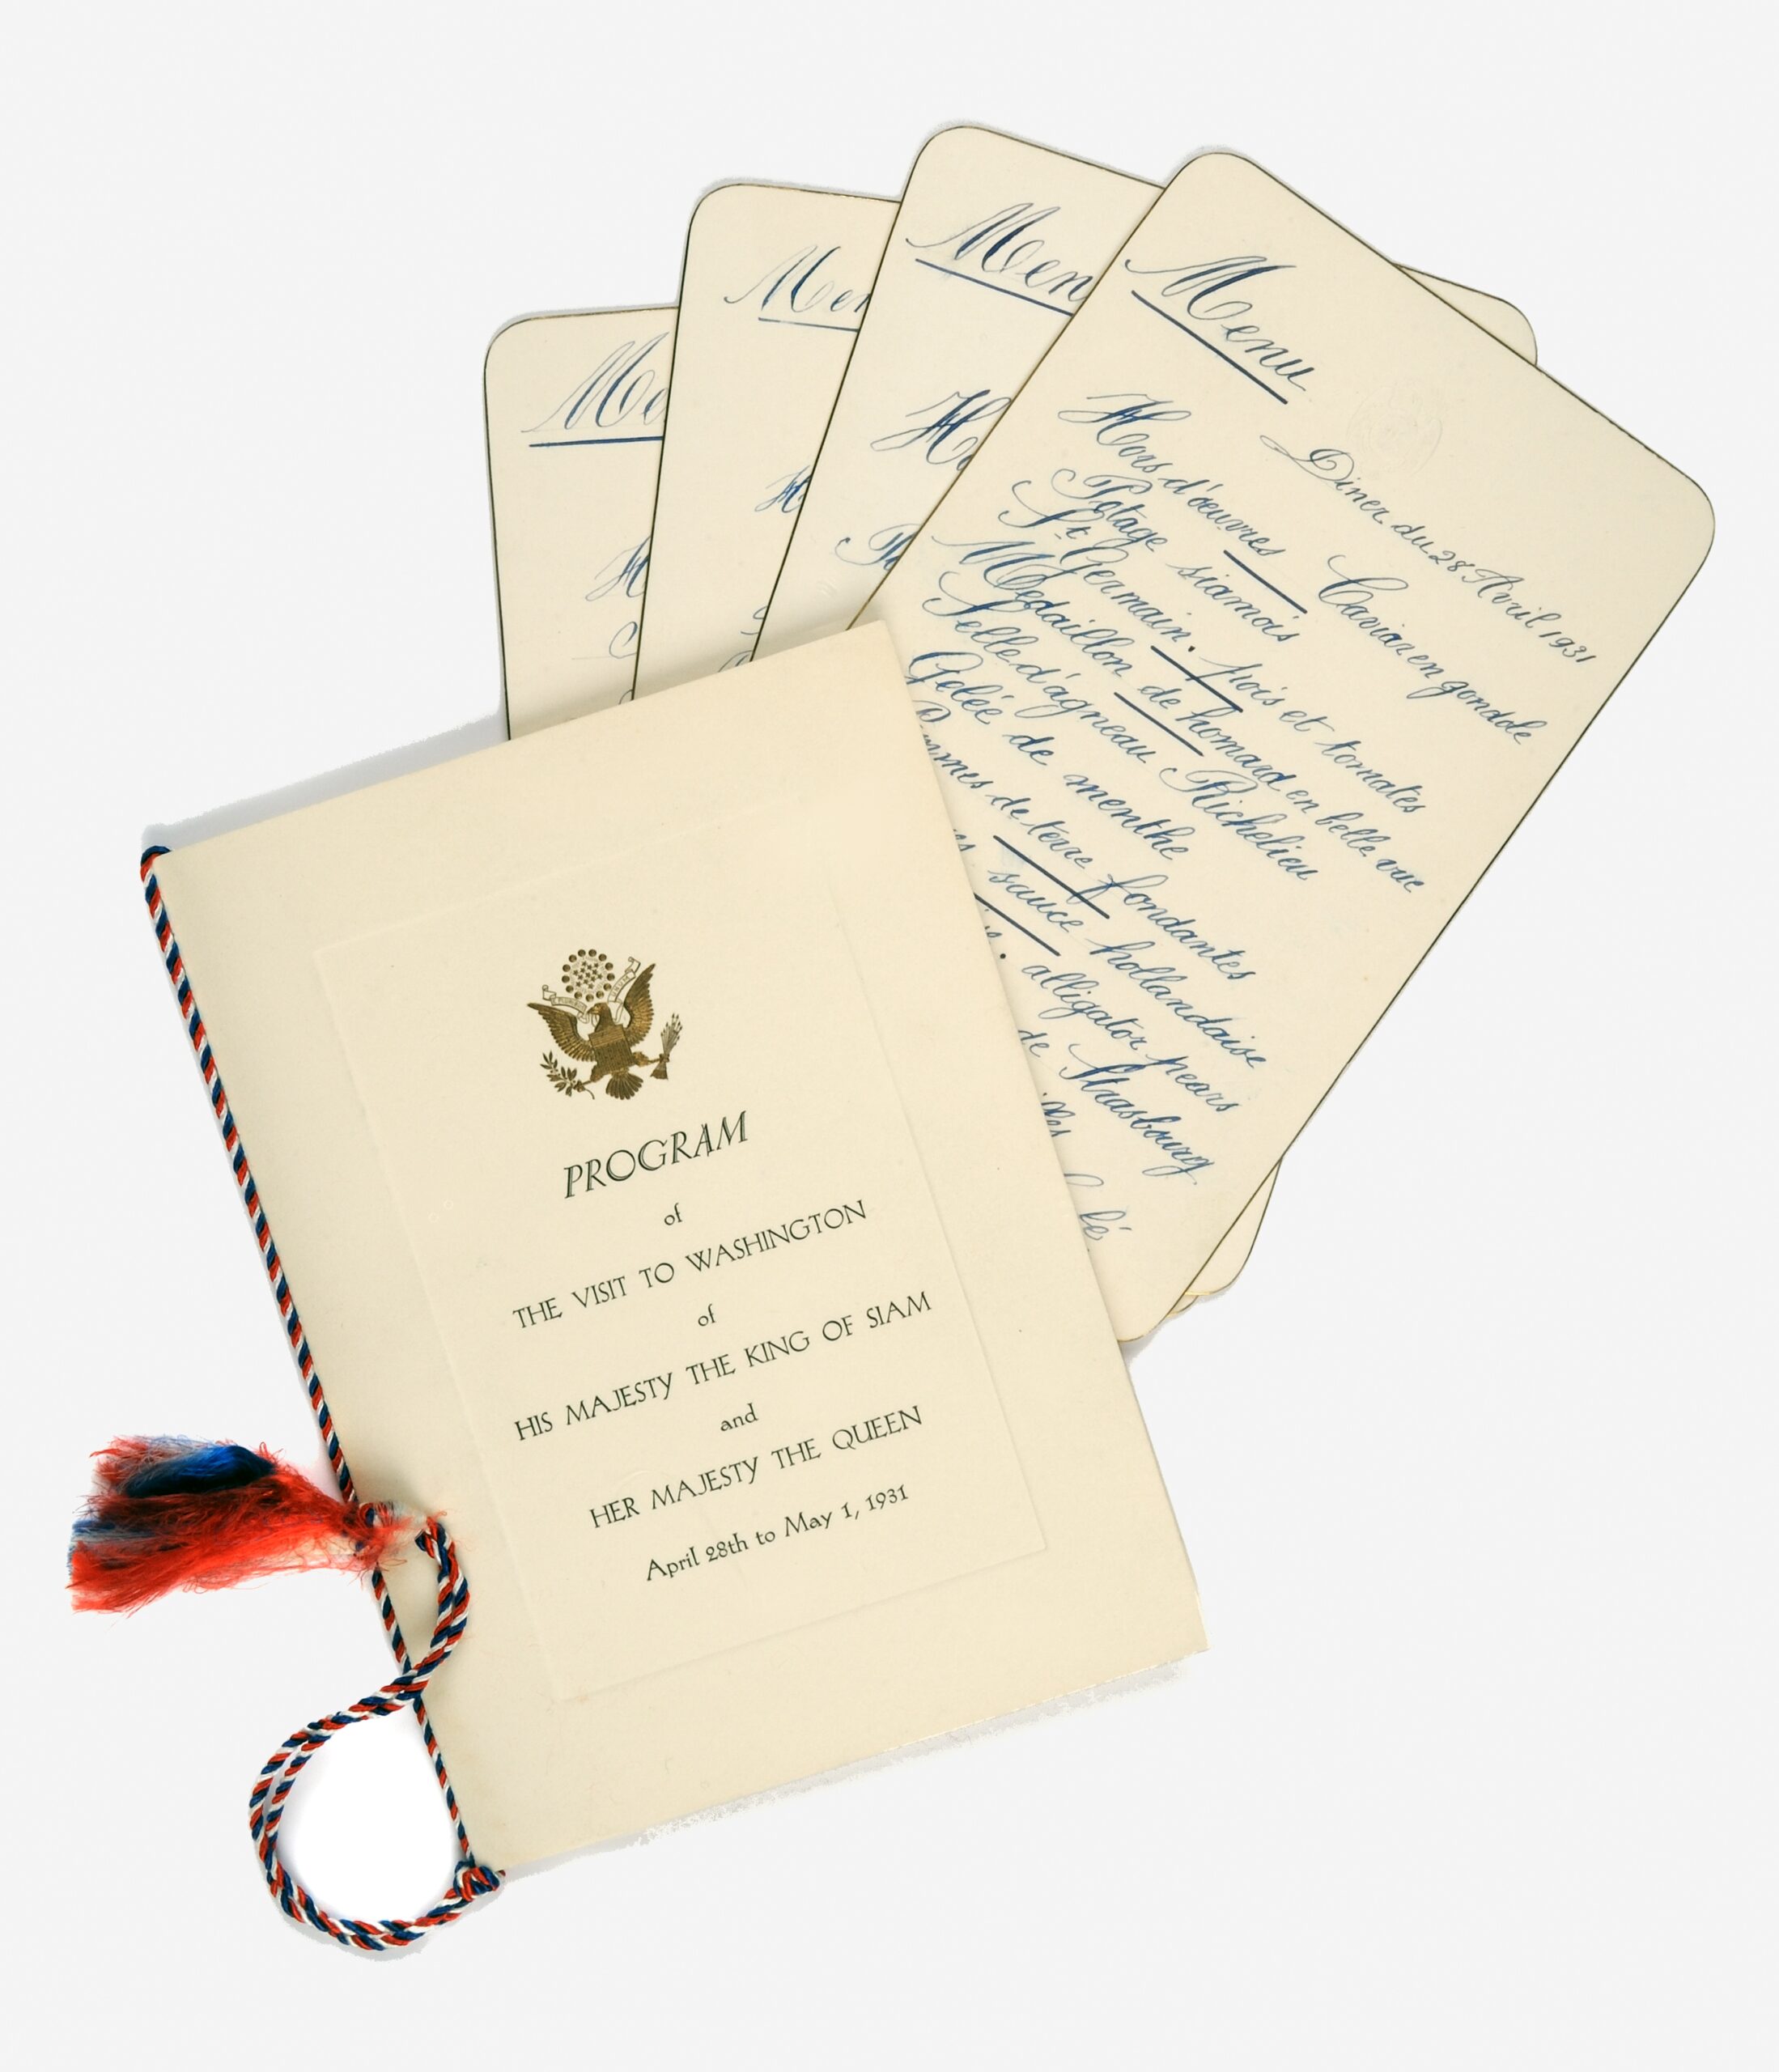 Menu
Diner du 28 Avril 1931
Hors d'œuvres Caviar en gondole
Potage siamois
St. Germain. pois et tomates
Medaillon de homard en belle vue
Selle d'agneau Richelieu
Gelée de menthe
Pommes de terre fondantes
sauce hollandaise
alligator pears
de Strasbourg
PROGRAM
of
THE VISIT TO WASHINGTON
of
HIS MAJESTY THE KING OF SIAM
and
HER MAJESTY THE QUEEN
April 28th to May 1, 1931